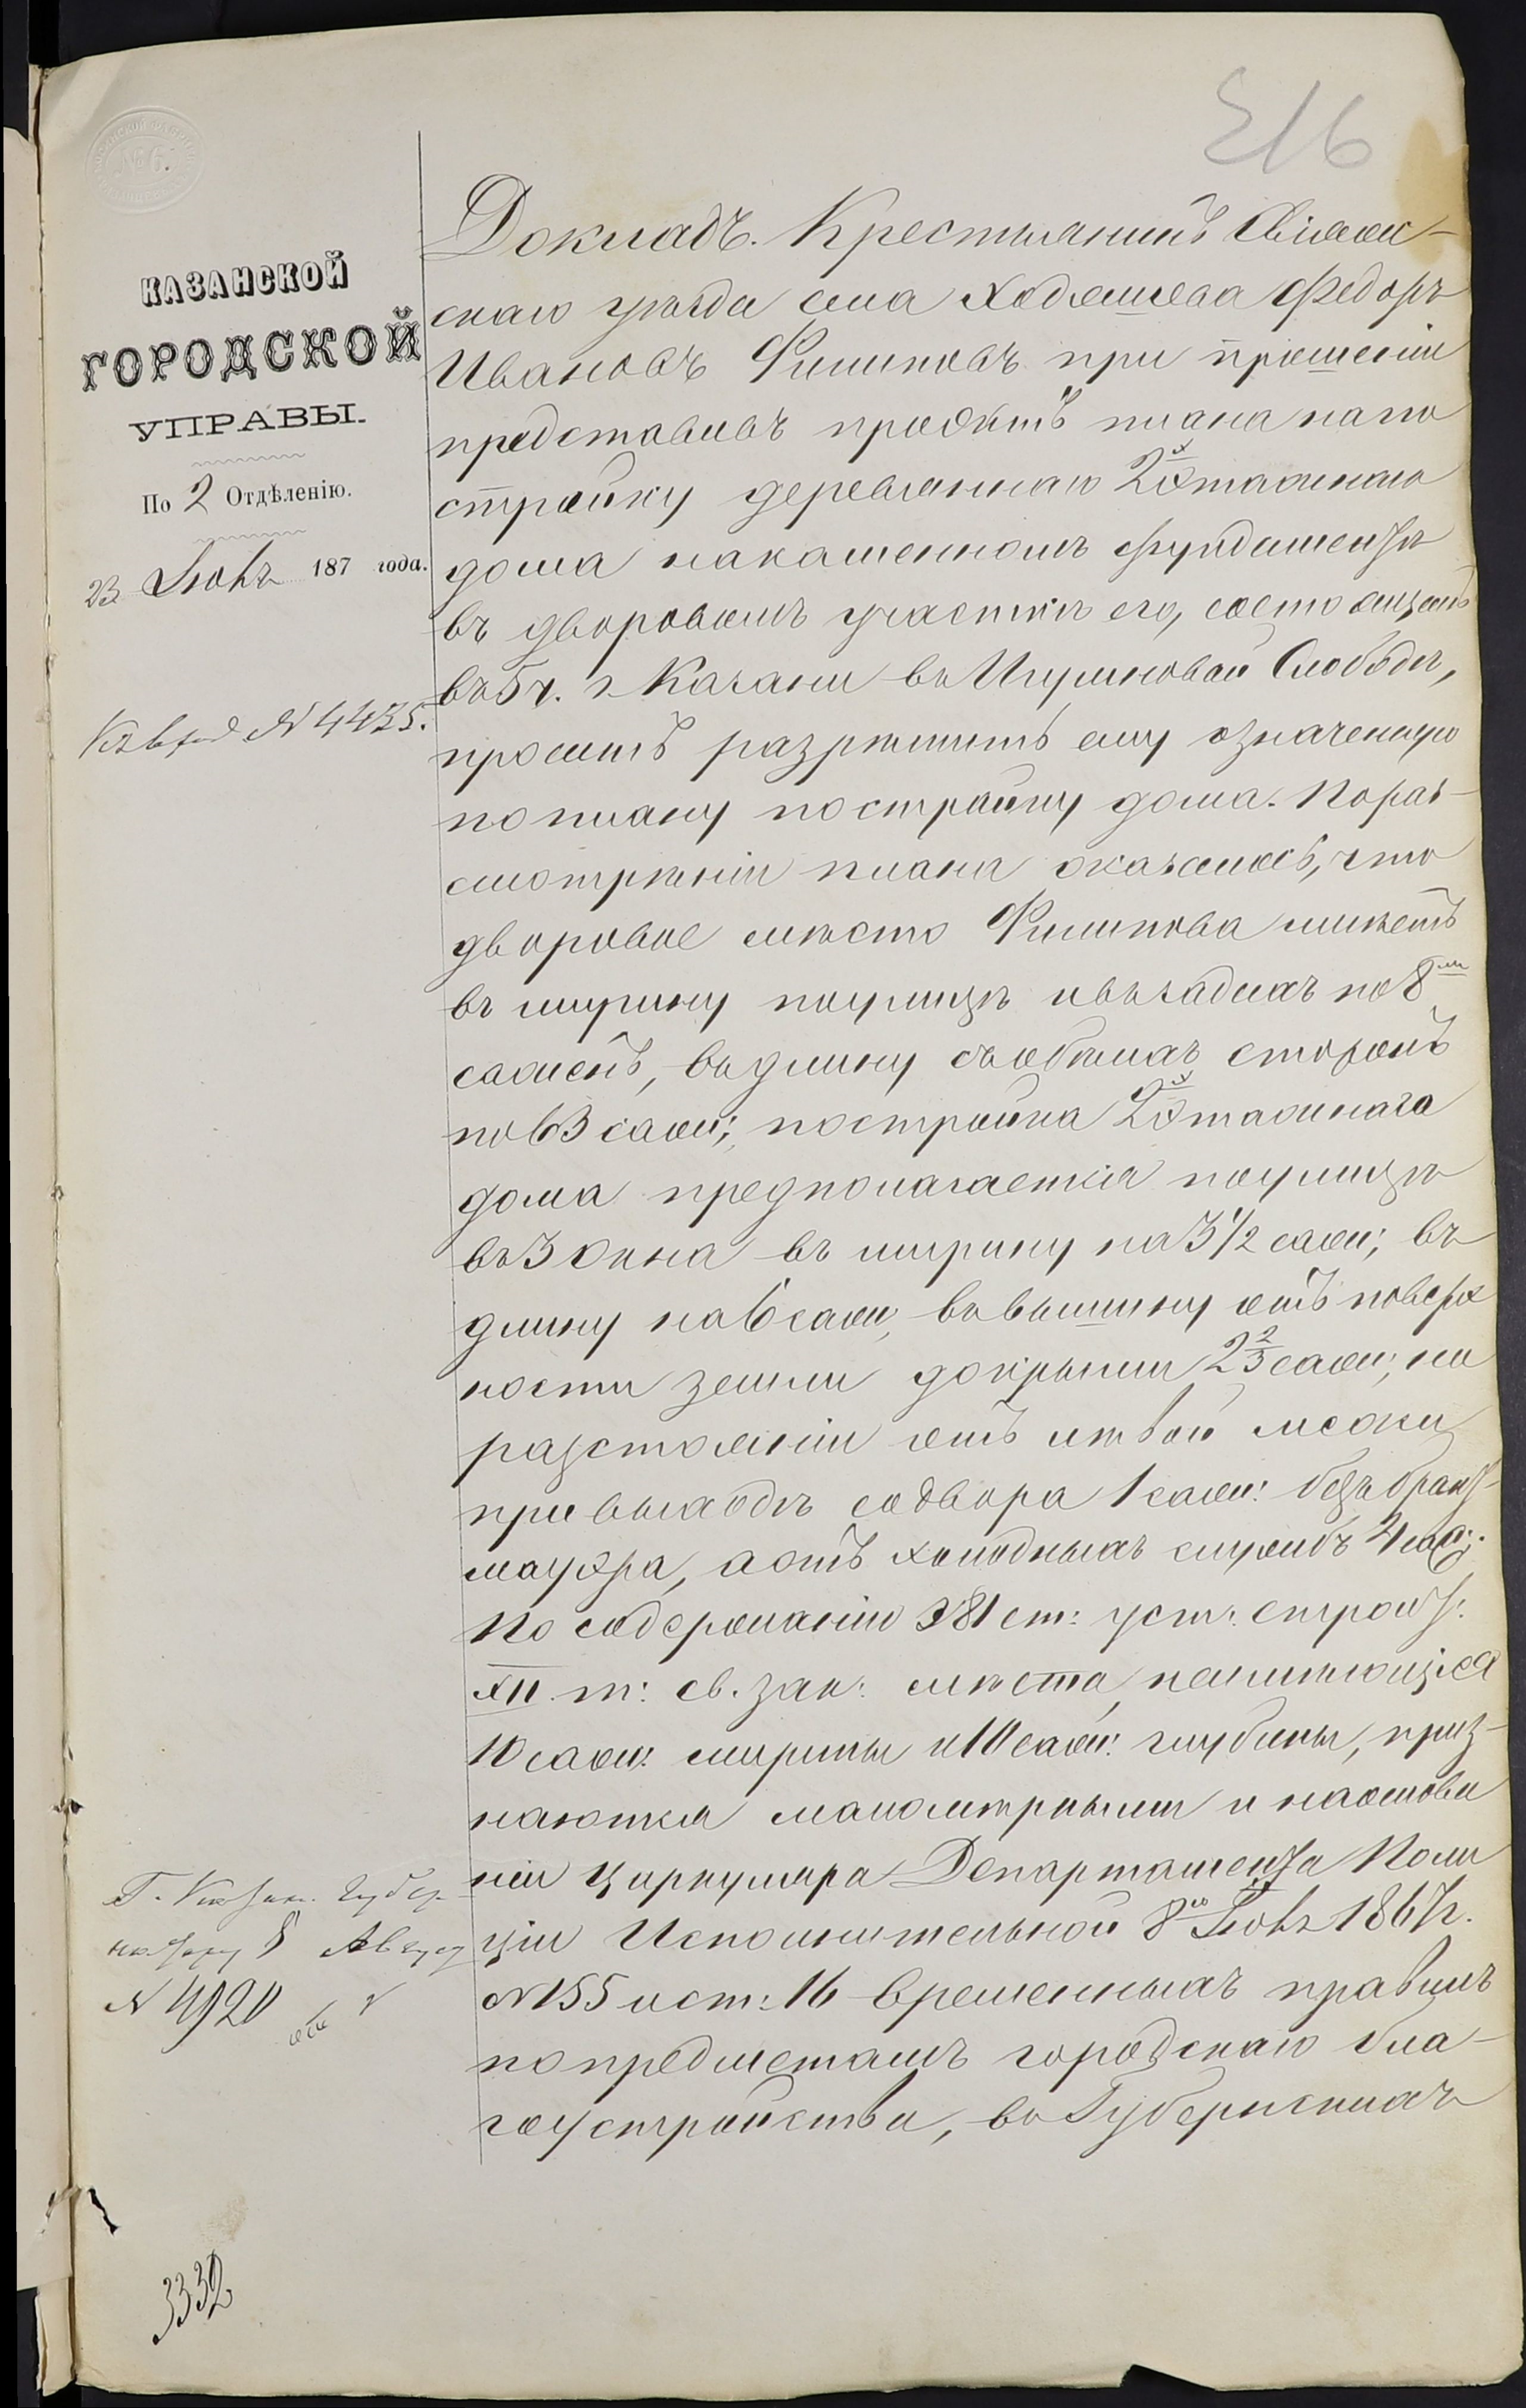 216
№ 6.
КАЗАНСКОЙ
ГОРОДСКОЙ
УПРАВЫ.
По 2 Отдѣленію.
23 Іюня 187 года.
Къ вход № 4435.
Докладъ. Крестьянинъ Свіяж-
скаго уѣзда села Ходяшева Федоръ
Ивановъ Филиповъ при прошеніи
представивъ проэктъ плана на по
стройку деревяннаго 2х этажнаго
дома на каменномъ фундаментѣ
въ дворовомъ участкѣ его, состоящемъ
въ 5 ч. г. Казани въ Игумновой Слободѣ,
проситъ разрѣшить ему означенную
по плану постройку дома. По раз-
смотрѣніи плана оказалось, что
дворовое мѣсто Филипова имѣетъ
въ ширину по улицѣ и въ задахъ по 8ми
сажень, въ длину съ обѣихъ сторонъ
по 63 саж; постройка 2х этажнаго
дома предполагается по улицѣ
въ 3 окна въ ширину на 3 1/2 саж; въ
длину на 6 саж, въ вышину отъ поверх
ности земли до крыши 2 2/3 саж; на
разстояніи отъ лѣвой межи
при въѣздѣ со двора 1 саж: безъ бранд-
мауэра, а отъ холодныхъ службъ 4 саж.
По содержанію 381 ст: уст: строит:
XII т: св. зак: мѣста, неимѣющіяся
10 саж: ширины и 10 саж: глубины, приз-
наются маломѣрными и на основа
ніи циркуляра Департамента Поли
ціи Исполнительной 8го Іюня 1867 г.
№ 155 и ст: 16 временныхъ правилъ
по предметамъ городскаго бла-
гоустройства, въ Губернскихъ
Г. Казан. Губер-
натору 8 Август
№ 4920
3332